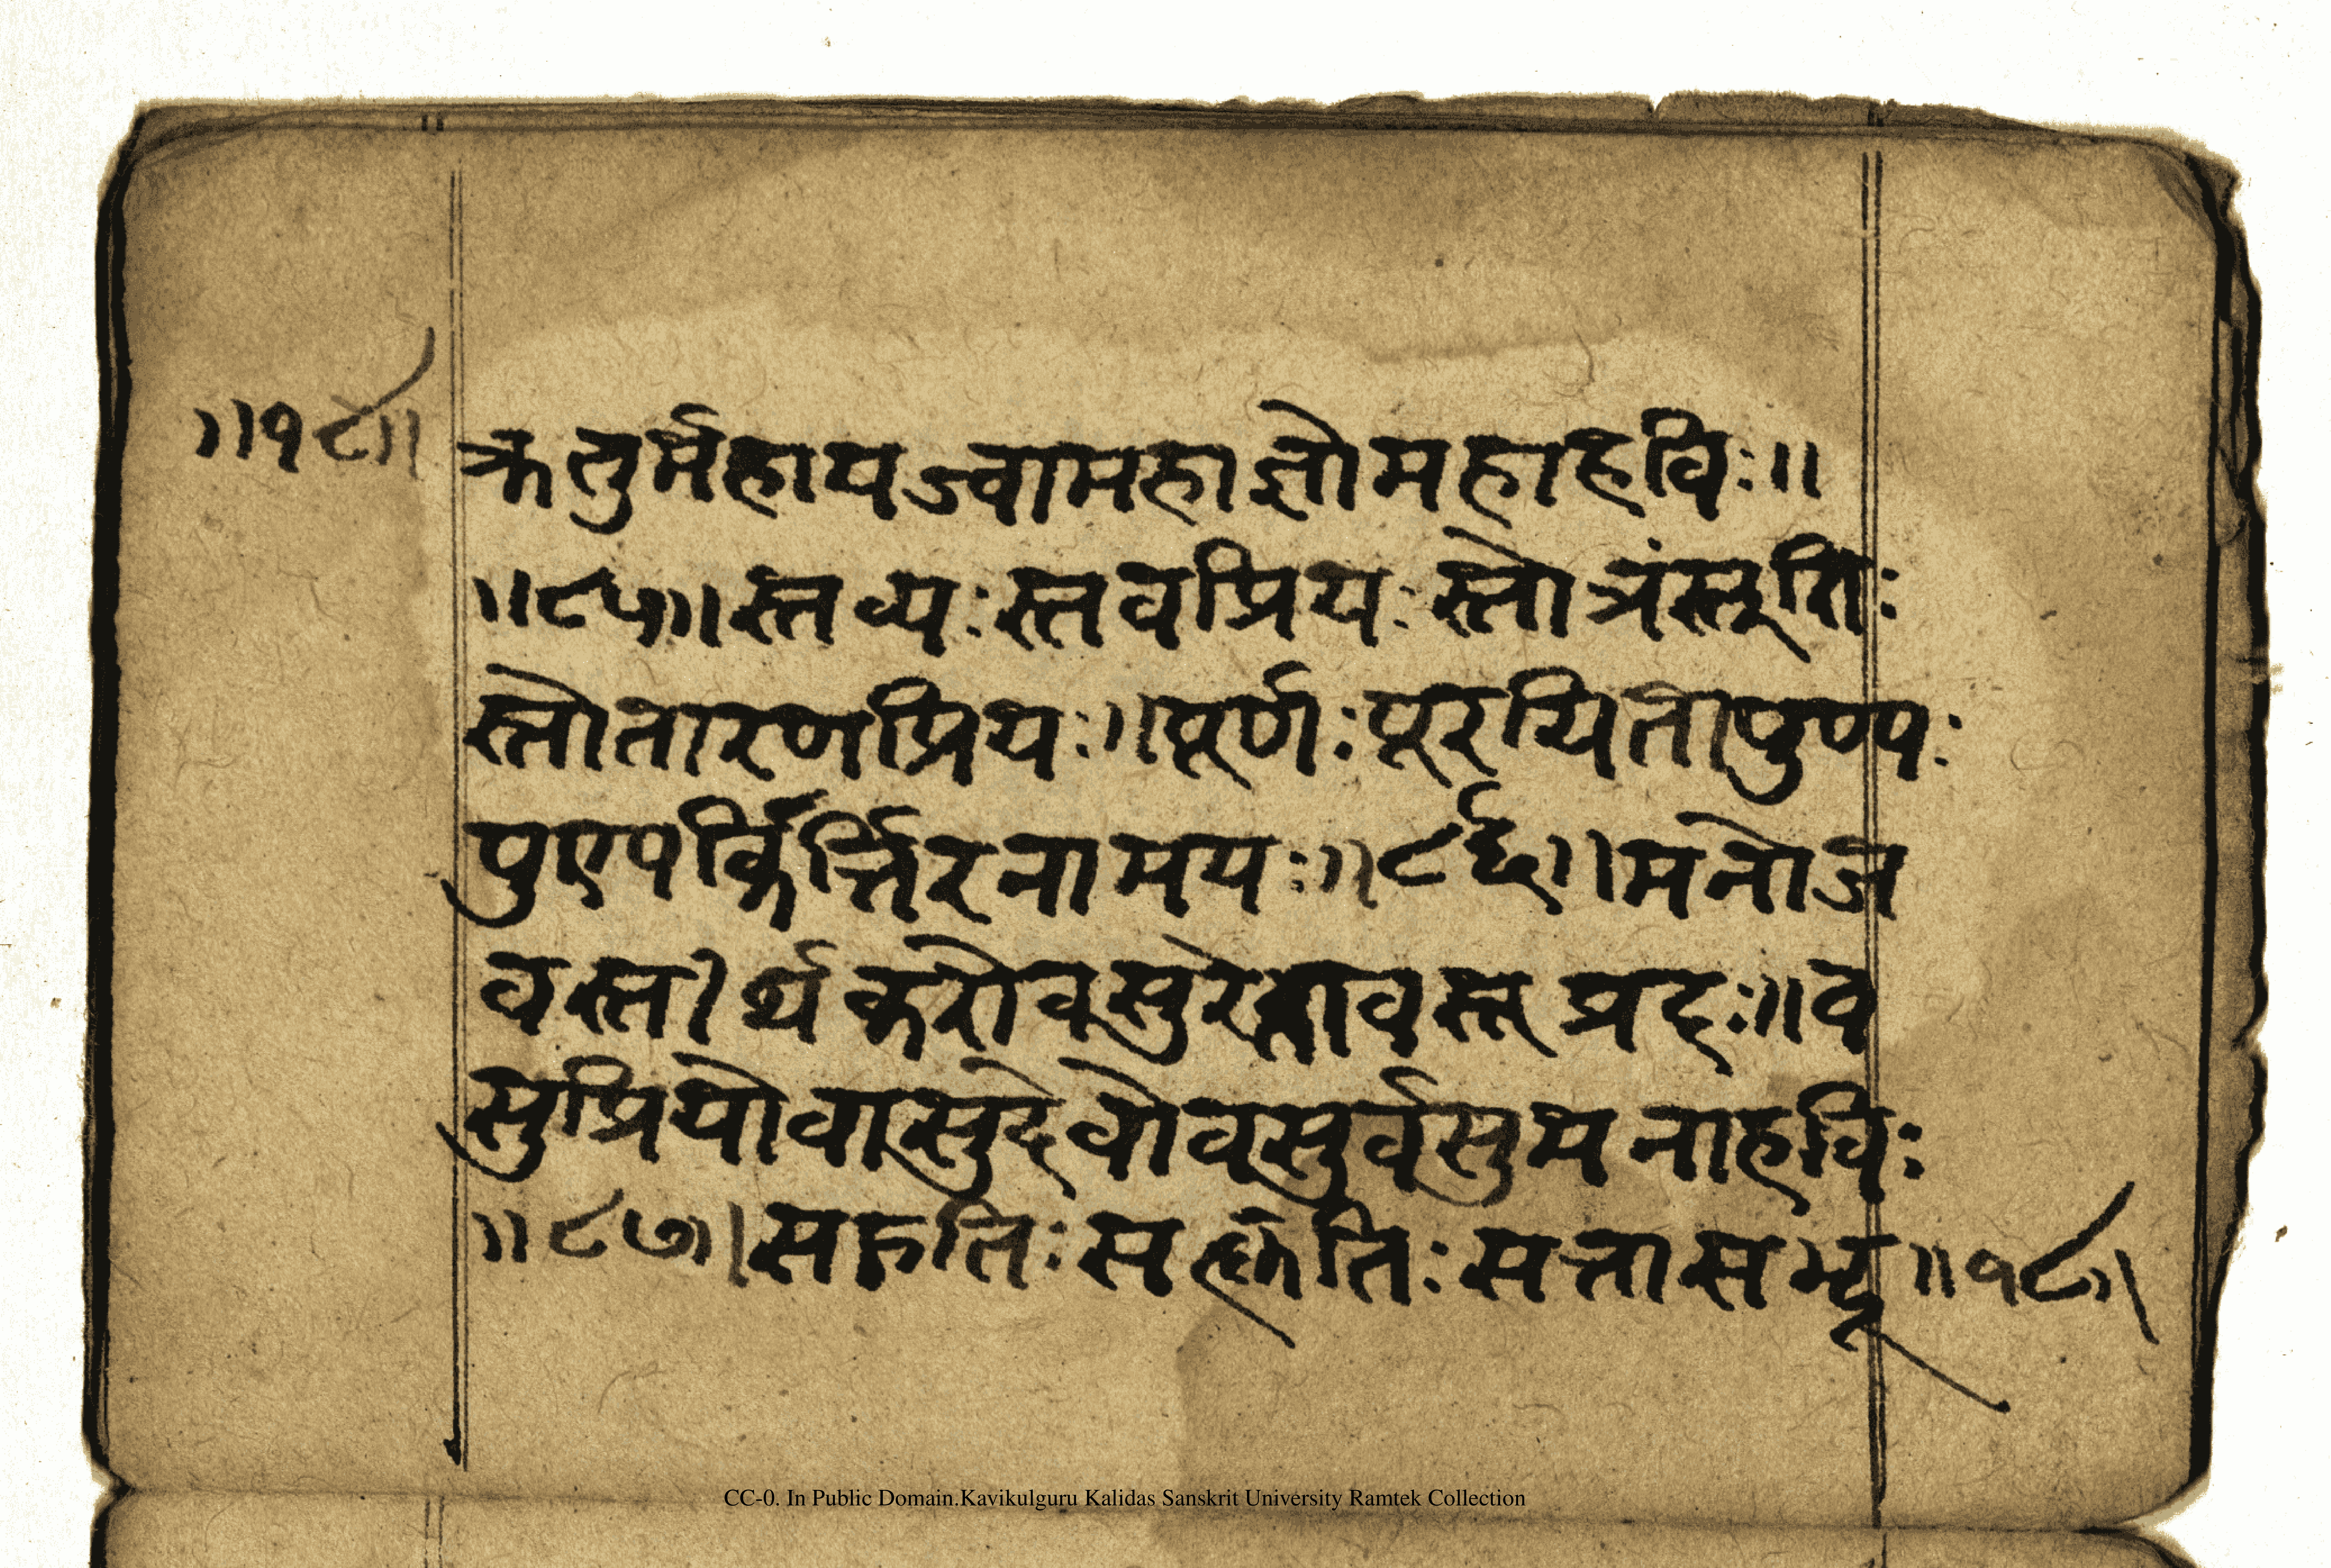 ॥१८॥ क्रतुर्महायज्वामहाज्ञोमहाहविः॥
॥८५॥स्तव्यःस्तवप्रियःस्तोत्रंस्तुतिः
स्तोतारणप्रियः॥पूर्णःपूरयितापुण्यः
पुण्यकीर्त्तिरनामयः॥८६॥मनोज
वस्तीर्थकरोवसुरेतावसुप्रदः॥व
सुप्रियोवासुदेवोवसुर्वसुमनाहविः
॥८७॥सद्गतिःसत्कृतिःसत्तासद्भू॥१८॥
CC-0. In Public Domain.Kavikulguru Kalidas Sanskrit University Ramtek Collection